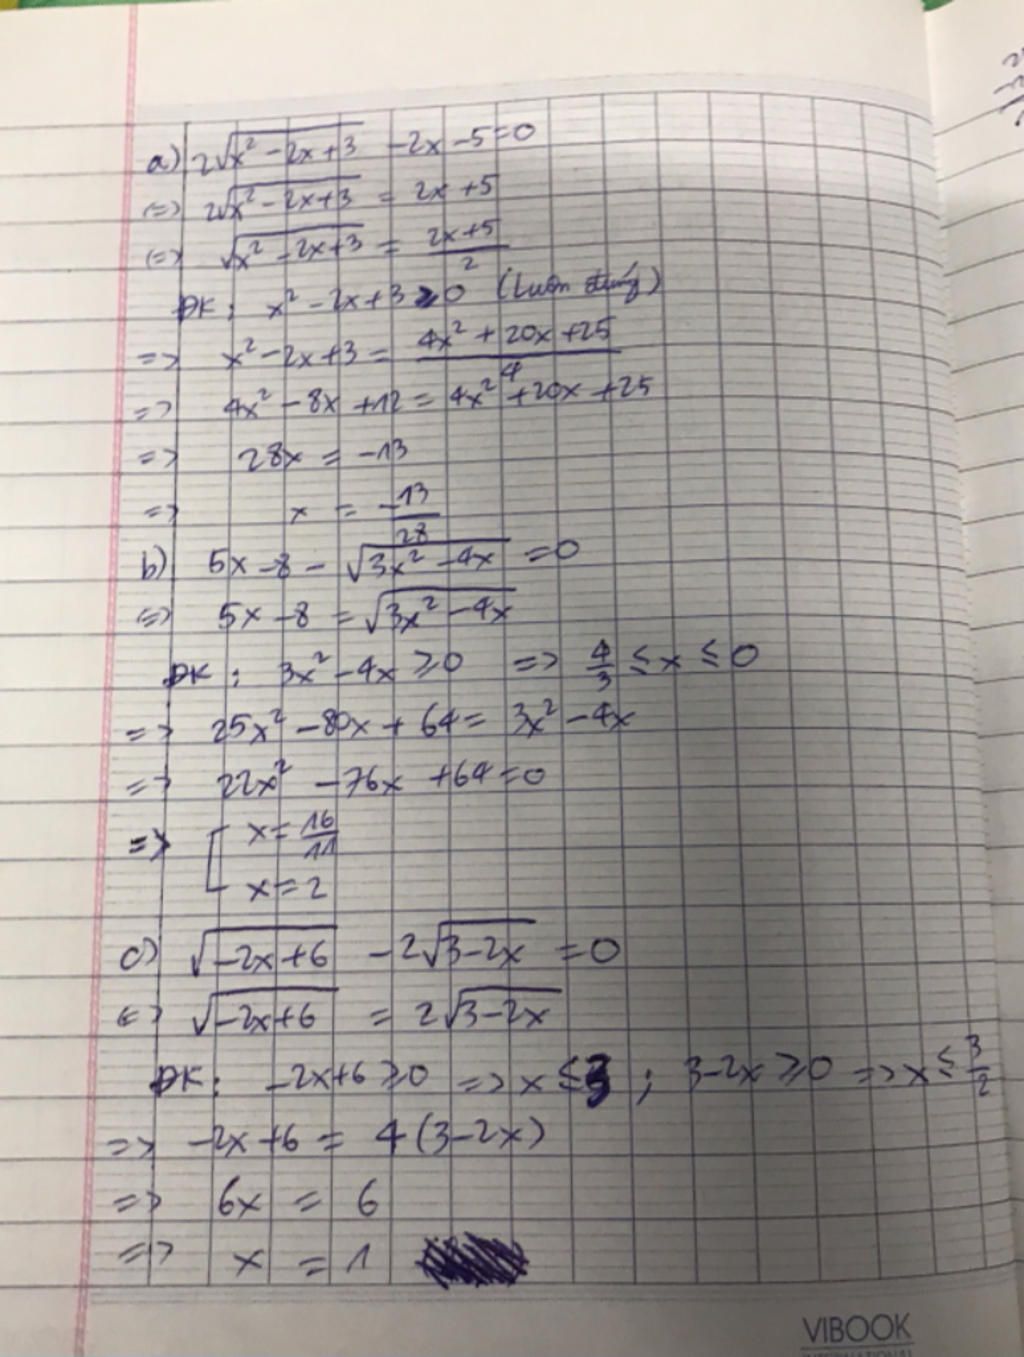 a) 2√(x² - 2x + 3) - 2x - 5 = 0
(=) 2√(x² - 2x + 3) = 2x + 5
(=) √(x² - 2x + 3) = (2x + 5)/2
ĐK: x² - 2x + 3 ≥ 0 (Luôn đúng)
=> x² - 2x + 3 = (4x² + 20x + 25)/4
=> 4x² - 8x + 12 = 4x² + 20x + 25
=> 28x = -13
=> x = -13/28
b) 5x - 8 - √(3x² - 4x) = 0
(=) 5x - 8 = √(3x² - 4x)
ĐK: 3x² - 4x ≥ 0 => 4/3 ≤ x ≤ 0
=> 25x² - 80x + 64 = 3x² - 4x
=> 22x² - 76x + 64 = 0
=> [ x = 16/11
x = 2
c) √(-2x + 6) - 2√(3 - 2x) = 0
<=> √(-2x + 6) = 2√(3 - 2x)
ĐK: -2x + 6 ≥ 0 => x ≤ 3 ; 3 - 2x ≥ 0 => x ≤ 3/2
=> -2x + 6 = 4(3 - 2x)
=> 6x = 6
=> x = 1
VIBOOK